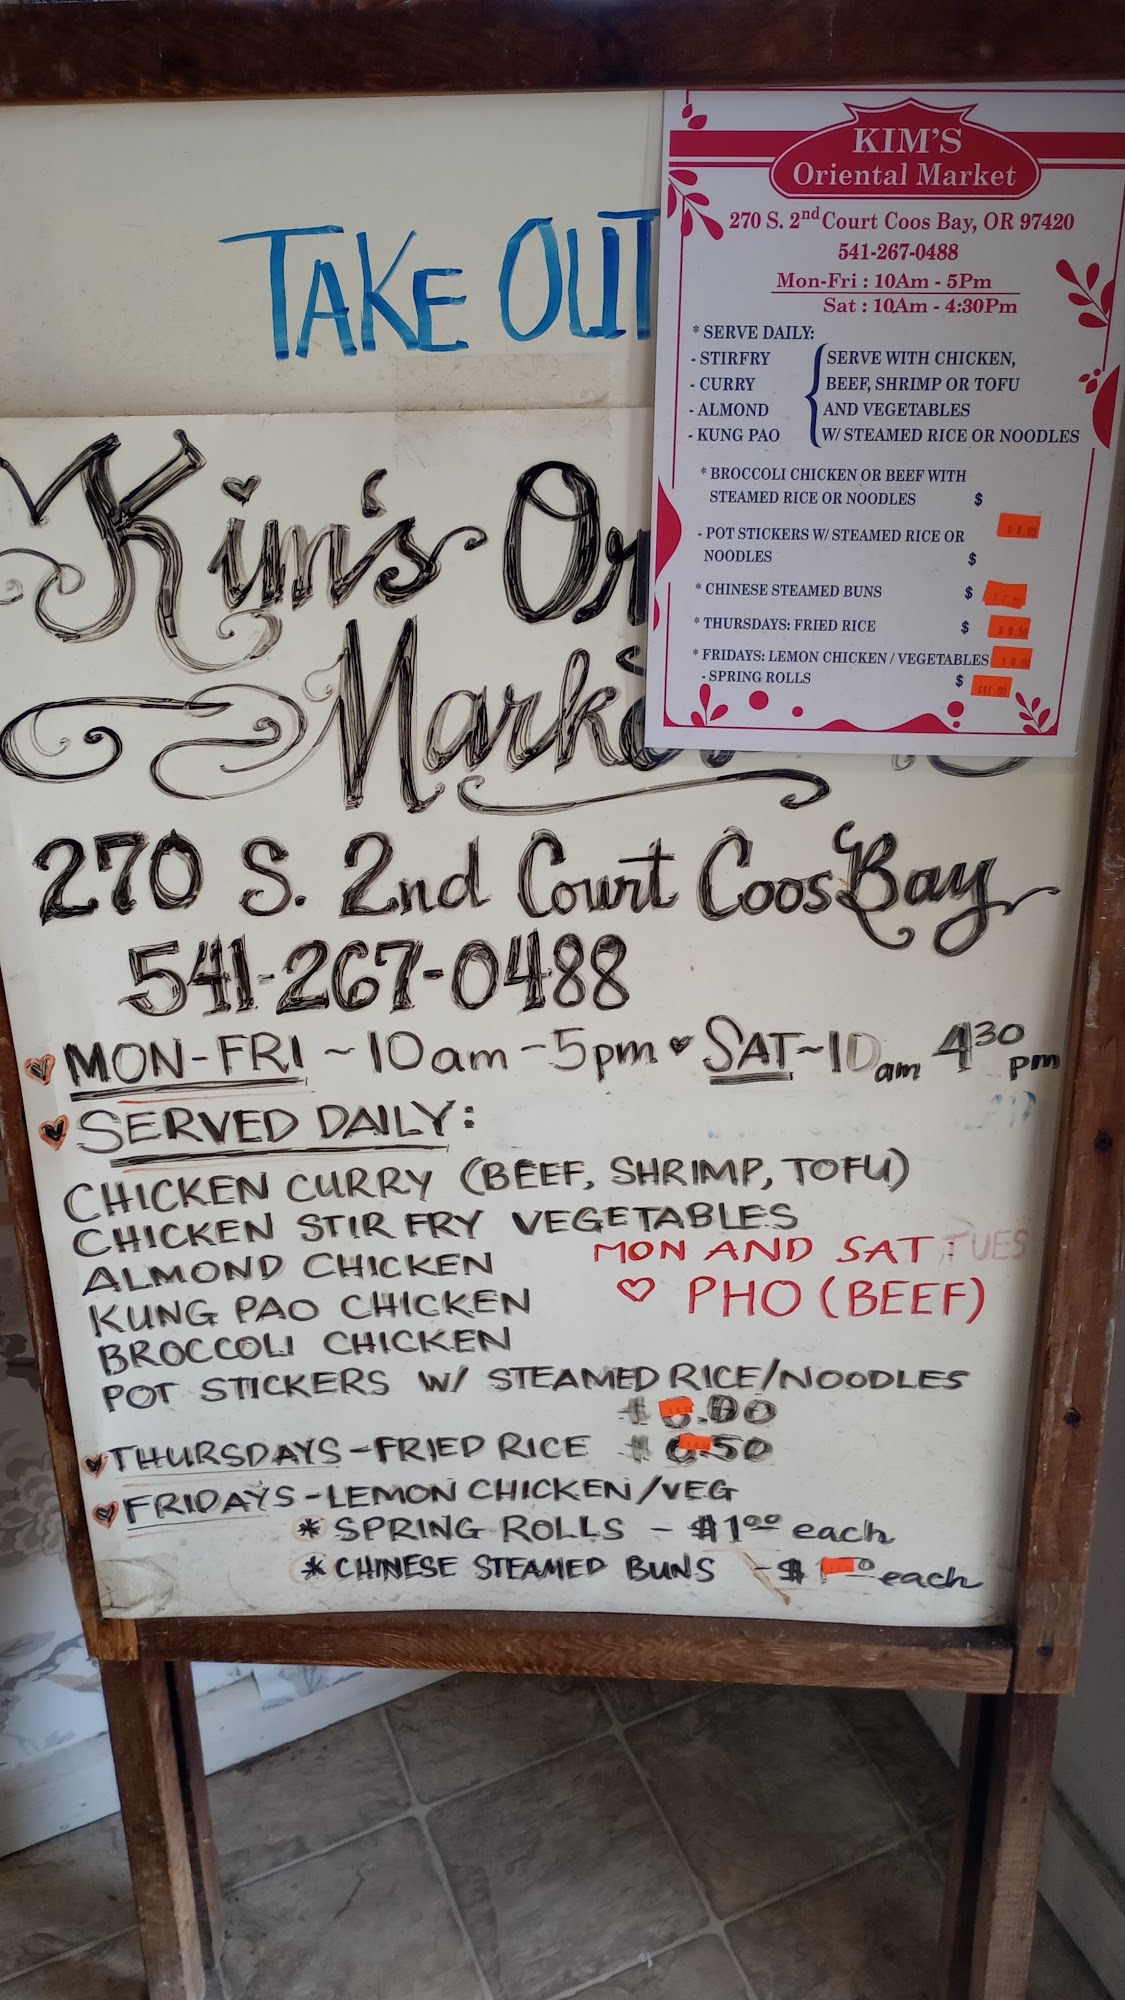 TAKE OUT
Kim's Or
Marke
270 S. 2nd Court Coos Bay
541-267-0488
MON-FRI ~ 10am - 5pm SAT~10am 4³⁰ pm
SERVED DAILY:
CHICKEN CURRY (BEEF, SHRIMP, TOFU)
CHICKEN STIR FRY VEGETABLES
ALMOND CHICKEN
MON AND SAT TUES
KUNG PAO CHICKEN
PHO (BEEF)
BROCCOLI CHICKEN
POT STICKERS W/ STEAMED RICE/NOODLES
THURSDAYS - FRIED RICE
FRIDAYS - LEMON CHICKEN/VEG
* SPRING ROLLS - $1⁰⁰ each
* CHINESE STEAMED BUNS - $ each
KIM'S
Oriental Market
270 S. 2nd Court Coos Bay, OR 97420
541-267-0488
Mon-Fri : 10Am - 5Pm
Sat : 10Am - 4:30Pm
* SERVE DAILY:
- STIRFRY SERVE WITH CHICKEN,
- CURRY BEEF, SHRIMP OR TOFU
- ALMOND AND VEGETABLES
- KUNG PAO W/ STEAMED RICE OR NOODLES
* BROCCOLI CHICKEN OR BEEF WITH
STEAMED RICE OR NOODLES $
- POT STICKERS W/ STEAMED RICE OR
NOODLES $
* CHINESE STEAMED BUNS $
* THURSDAYS: FRIED RICE $
* FRIDAYS: LEMON CHICKEN / VEGETABLES
- SPRING ROLLS $